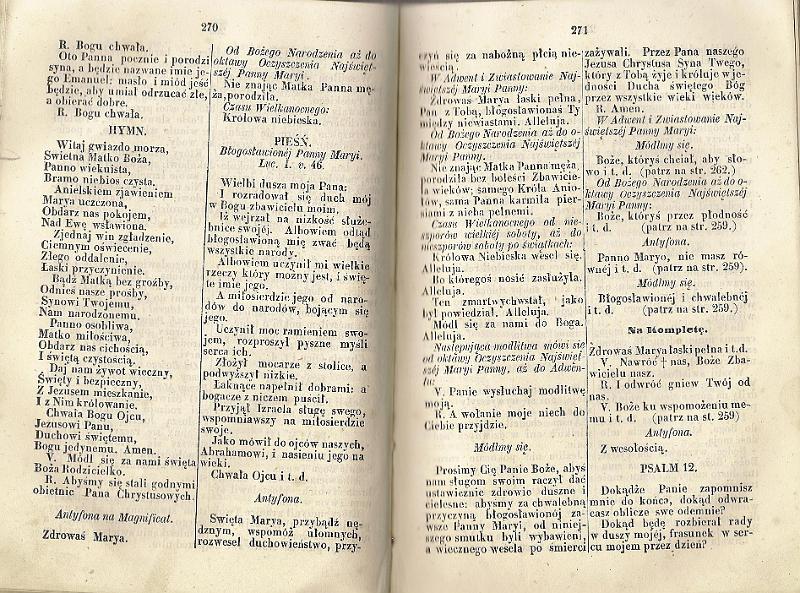 270
R. Bogu chwała.
Oto Panna pocznie i porodzi
syna, a będzie nazwane imie je-
go Emanuel: masło i miód jeść
będzie, aby umiał odrzucać złe,
a obierać dobre.
R. Bogu chwała.
HYMN.
Witaj gwiazdo morza,
Świetna Matko Boża,
Panno wiekuista,
Bramo niebios czysta.
Anielskiem zjawieniem
Marya uczczona,
Obdarz nas pokojem,
Nad Ewę wsławiona.
Zjednaj win zgładzenie,
Ciemnym oświecenie,
Złego oddalenie,
Łaski przyczynienie.
Bądź Matką bez groźby,
Odnieś nasze prośby,
Synowi Twojemu,
Nam narodzonemu.
Panno osobliwa,
Matko miłościwa,
Obdarz nas cichością,
I świętą czystością.
Daj nam żywot wieczny,
Święty i bezpieczny,
Z Jezusem mieszkanie,
I z Nim królowanie.
Chwała Bogu Ojcu,
Jezusowi Panu,
Duchowi świętemu,
Bogu jedynemu. Amen.
V. Módl się za nami święta
Boża Rodzicielko.
R. Abyśmy się stali godnymi
obietnic Pana Chrystusowych.
Antyfona na Magnificat.
Zdrowaś Marya.
Od Bożego Narodzenia aż do
oktawy Oczyszczenia Najświęt-
széj Panny Maryi.
Nie znając Matka Panna mę-
ża, porodziła.
Czasu Wielkanocnego:
Królowa niebieska.
PIEŚŃ.
Błogosławionéj Panny Maryi.
Luc. 1. v. 46.
Wielbi dusza moja Pana:
I rozradował się duch mój
w Bogu zbawicielu moim.
Iż wejrzał na nizkość służe-
bnice swojéj. Albowiem odtąd
błogosławioną mię zwać będą
wszystkie narody.
Albowiem uczynił mi wielkie
rzeczy który możny jest, i świę-
te imie jego.
A miłosierdzie jego od naro-
dów do narodów, bojącym się
jego.
Uczynił moc ramieniem swo-
jem, rozproszył pyszne myśli
serca ich.
Złożył mocarze z stolice, a
podwyższył nizkie.
Łaknące napełnił dobrami: a
bogacze z niczem puścił.
Przyjął Izraela sługę swego,
wspomniawszy na miłosierdzie
swoje.
Jako mówił do ojców naszych,
Abrahamowi, i nasieniu jego na
wieki.
Chwała Ojcu i t. d.
Antyfona.
Święta Marya, przybądź nę-
dznym, wspomóż ułomnych,
rozwesel duchowieństwo, przy-
271
czyń się za nabożną płcią nie-
wieścią.
W Adwent i Zwiastowanie Naj-
świętszéj Maryi Panny:
Zdrowaś Marya łaski pełna,
Pan z Tobą, błogosławionaś Ty
między niewiastami. Alleluja.
Od Bożego Narodzenia aż do o-
ktawy Oczyszczenia Najświętszéj
Maryi Panny.
Nie znając Matka Panna męża,
porodziła bez boleści Zbawicie-
la wieków; samego Króla Anio-
łów, sama Panna karmiła pier-
siami z nieba pełnemi.
Czasu Wielkanocnego od nie-
szporów wielkiéj soboty, aż do
nieszporów soboty po świątkach:
Królowa Niebieska wesel się.
Alleluja.
Bo któregoś nosić zasłużyła.
Alleluja.
Ten zmartwychwstał, jako
był powiedział. Alleluja.
Módl się za nami do Boga.
Alleluja.
Następująca modlitwa mówi się
od oktawy Oczyszczenia Najświęt-
széj Maryi Panny, aż do Adwen-
tu:
V. Panie wysłuchaj modlitwę
moją.
R. A wołanie moje niech do
Ciebie przyjdzie.
Módlmy się.
Prosimy Cię Panie Boże, abyś
nam sługom swoim raczył dać
ustawicznie zdrowie duszne i
cielesne: abyśmy za chwalebną
przyczyną błogosławionéj za-
wsze Panny Maryi, od niniej-
szego smutku byli wybawieni,
a wiecznego wesela po śmierci
zażywali. Przez Pana naszego
Jezusa Chrystusa Syna Twego,
który z Tobą żyje i króluje w je-
dności Ducha świętego Bóg
przez wszystkie wieki wieków.
R. Amen.
W Adwent i Zwiastowanie Naj-
świętszéj Panny Maryi:
Módlmy się.
Boże, któryś chciał, aby sło-
wo i t. d. (patrz na str. 262.)
Od Bożego Narodzenia aż do o-
ktawy Oczyszczenia Najświętszéj
Maryi Panny:
Boże, któryś przez płodność
i t. d. (patrz na str. 259.)
Antyfona.
Panno Maryo, nie masz ró-
wnéj i t. d. (patrz na str. 259).
Módlmy się.
Błogosławionej i chwalebnéj
i t. d. (patrz na str. 259.)
Na Kompletę.
Zdrowaś Marya łaski pełna i t. d.
V. Nawróć † nas, Boże Zba-
wicielu nasz.
R. I odwróć gniew Twój od
nas.
V. Boże ku wspomożeniu me-
mu i t. d. (patrz na str. 259)
Antyfona.
Z wesołością.
PSALM 12.
Dokądże Panie zapomnisz
mnie do końca, dokąd odwra-
casz oblicze swe odemnie?
Dokąd będę rozbierał rady
w duszy mojéj, frasunek w ser-
cu mojem przez dzień?